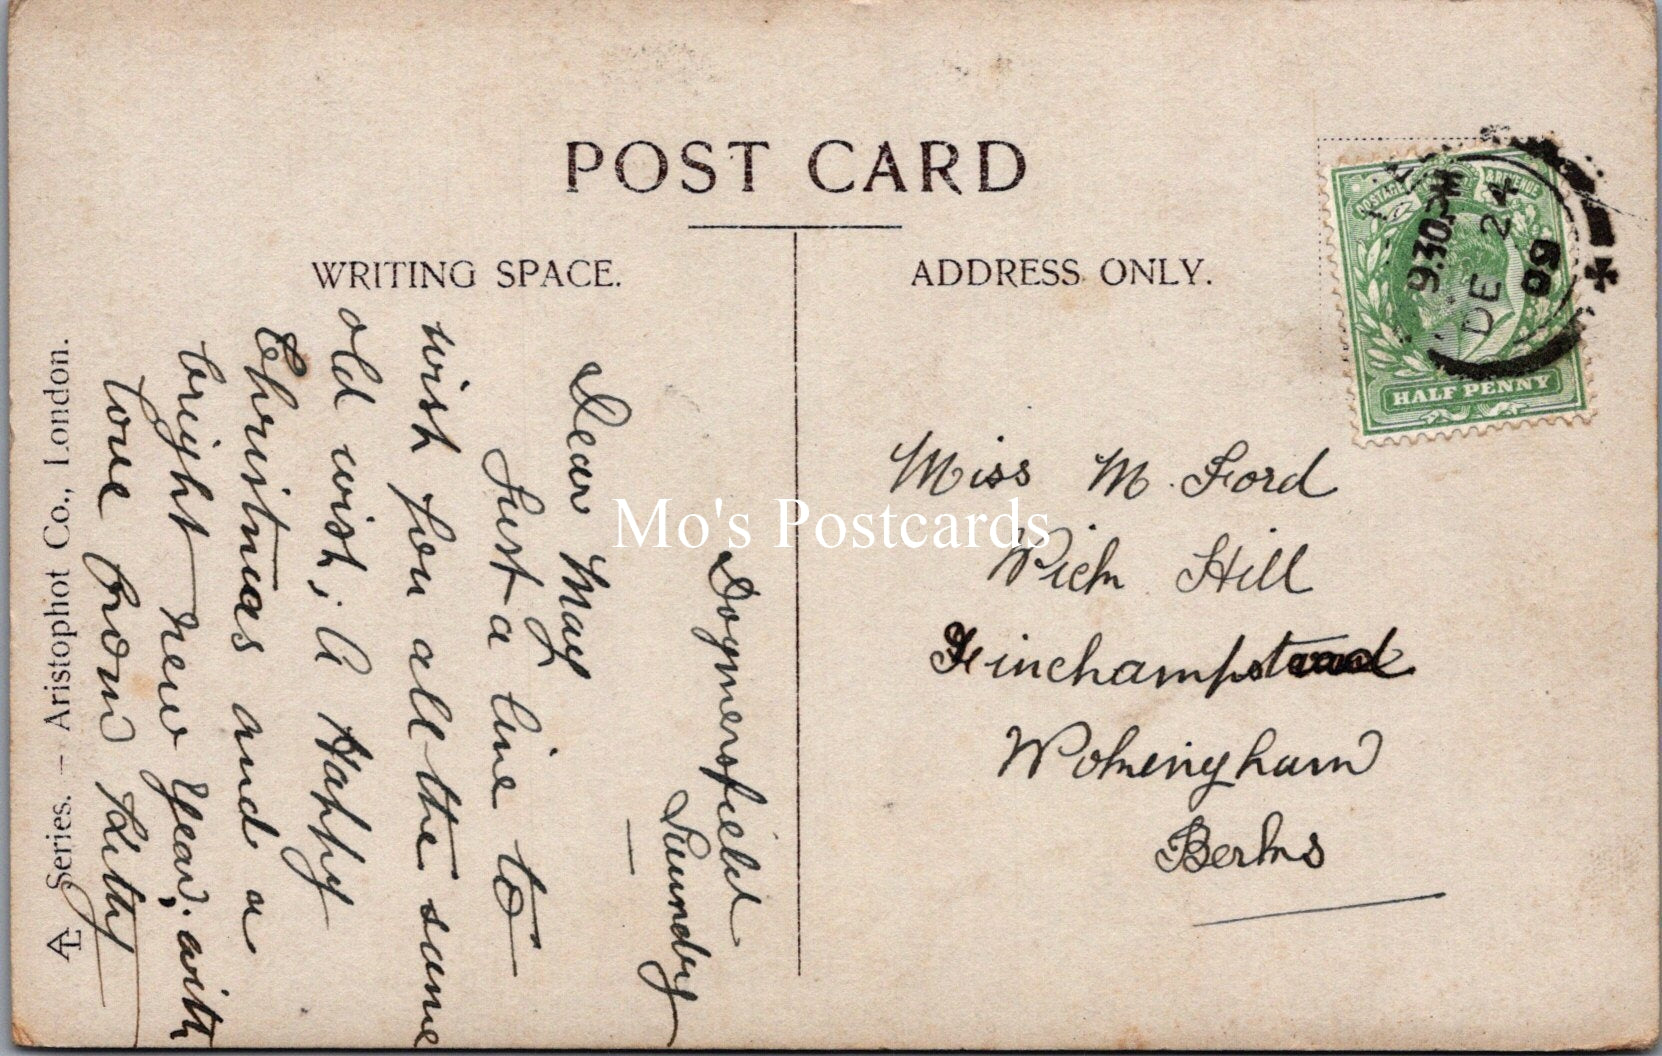 POST CARD
WRITING SPACE.
ADDRESS ONLY.
POSTAGE & REVENUE
9.30PM
DE 24
09
HALF PENNY
Miss M. Ford
Wick Hill
Finchampstead
Wokingham
Berks
Dogmersfield
Sunday
Dear May
Just a line to
wish you all the same
old wish; A Happy
Christmas and a
bright New Year, with
love from Kitty
Series. – Aristophot Co., London.
Mo's Postcards